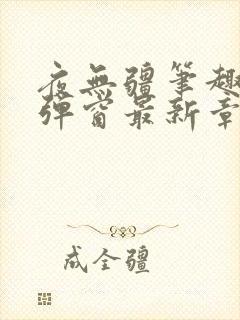 夜無疆筆趣
彈窗最新章
成全疆